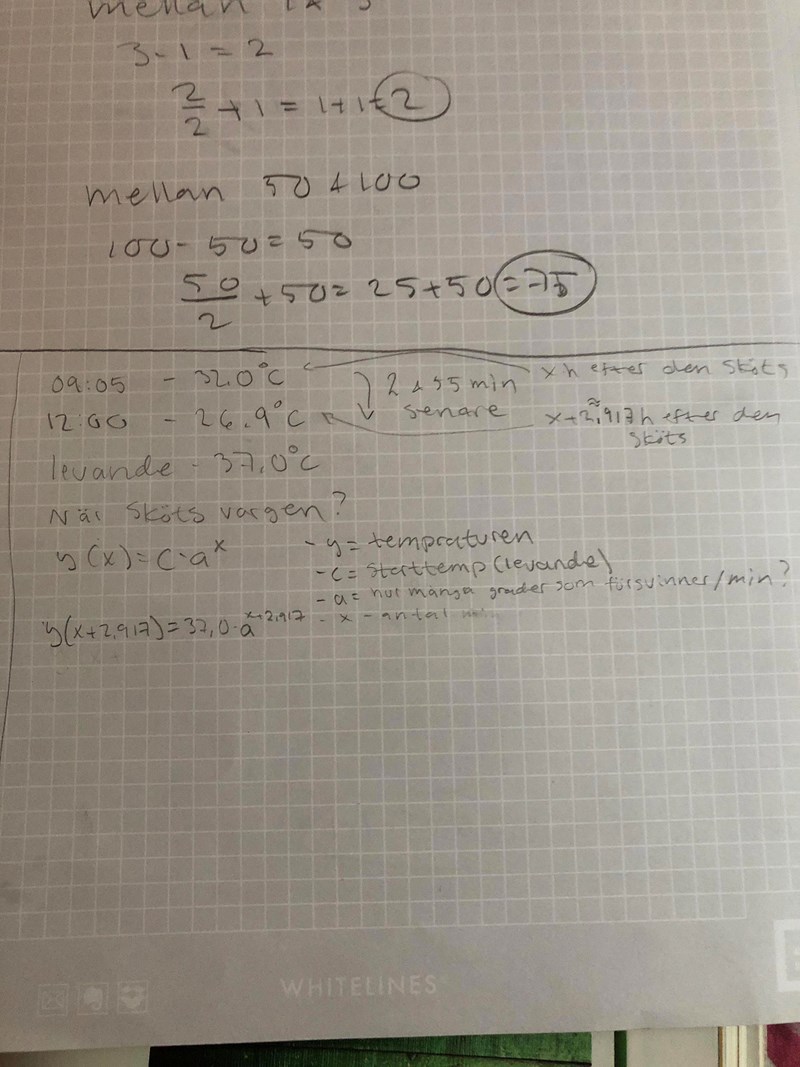 mellan 1 & 3
3-1 = 2
2/2 + 1 = 1+1 = 2
mellan 50 & 100
100 - 50 = 50
50/2 + 50 = 25+50 = 75
09:05 - 32.0°C 2 h 55 min x h efter den sköts
12:00 - 26.9°C senare x+2,917 h efter den sköts
≈
levande - 37,0°C
När sköts vargen?
y(x) = C·a^x - y = tempraturen
- C = starttemp (levande)
- a = hur många grader som försvinner/min?
y(x+2,917) = 37,0·a^x+2,917 - x - antal
WHITELINES